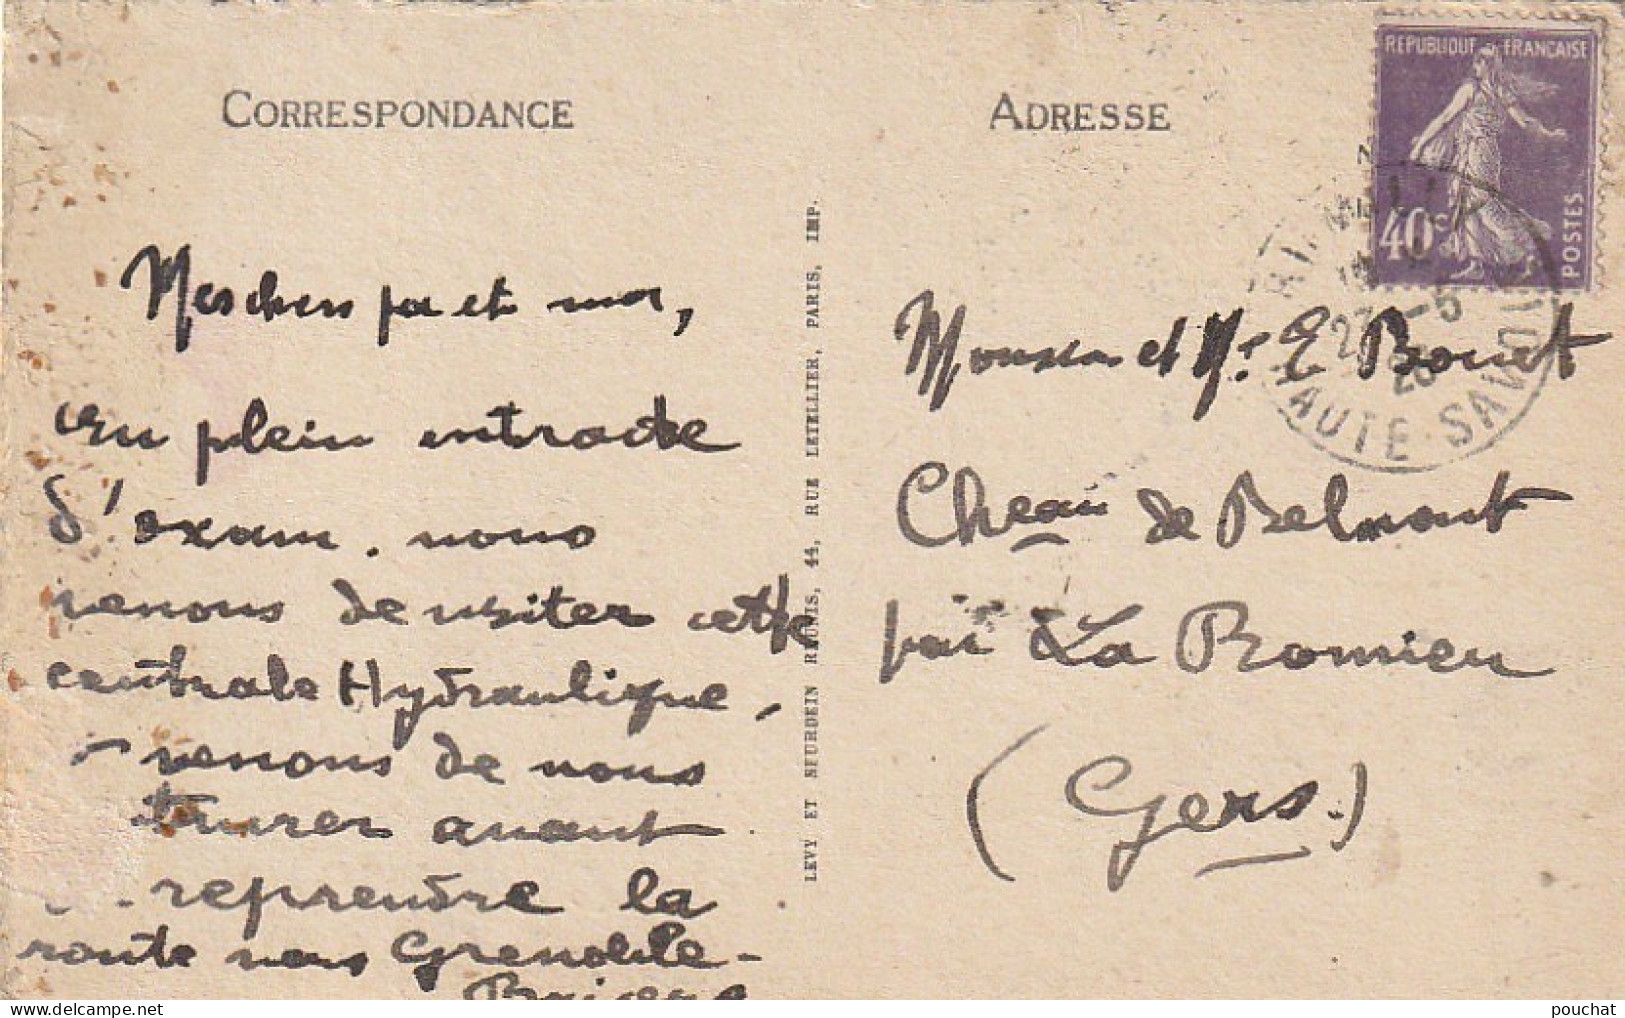 CORRESPONDANCE
Mes chers pa et ma,
en plein entracte
d'exam. nous
venons de visiter cette
centrale Hydraulique,
venons de nous
avant
reprendre la
route vers Grenoble -
LEVY ET NEURDEIN REUNIS, 44, RUE LETELLIER, PARIS, IMP.
ADRESSE
REPUBLIQUE FRANCAISE
40c
POSTES
27 -5
HAUTE SAVOIE
Monsieur et Me E Bonnet
Cheau de Belmont
par La Romieu
(Gers.)
pouchat